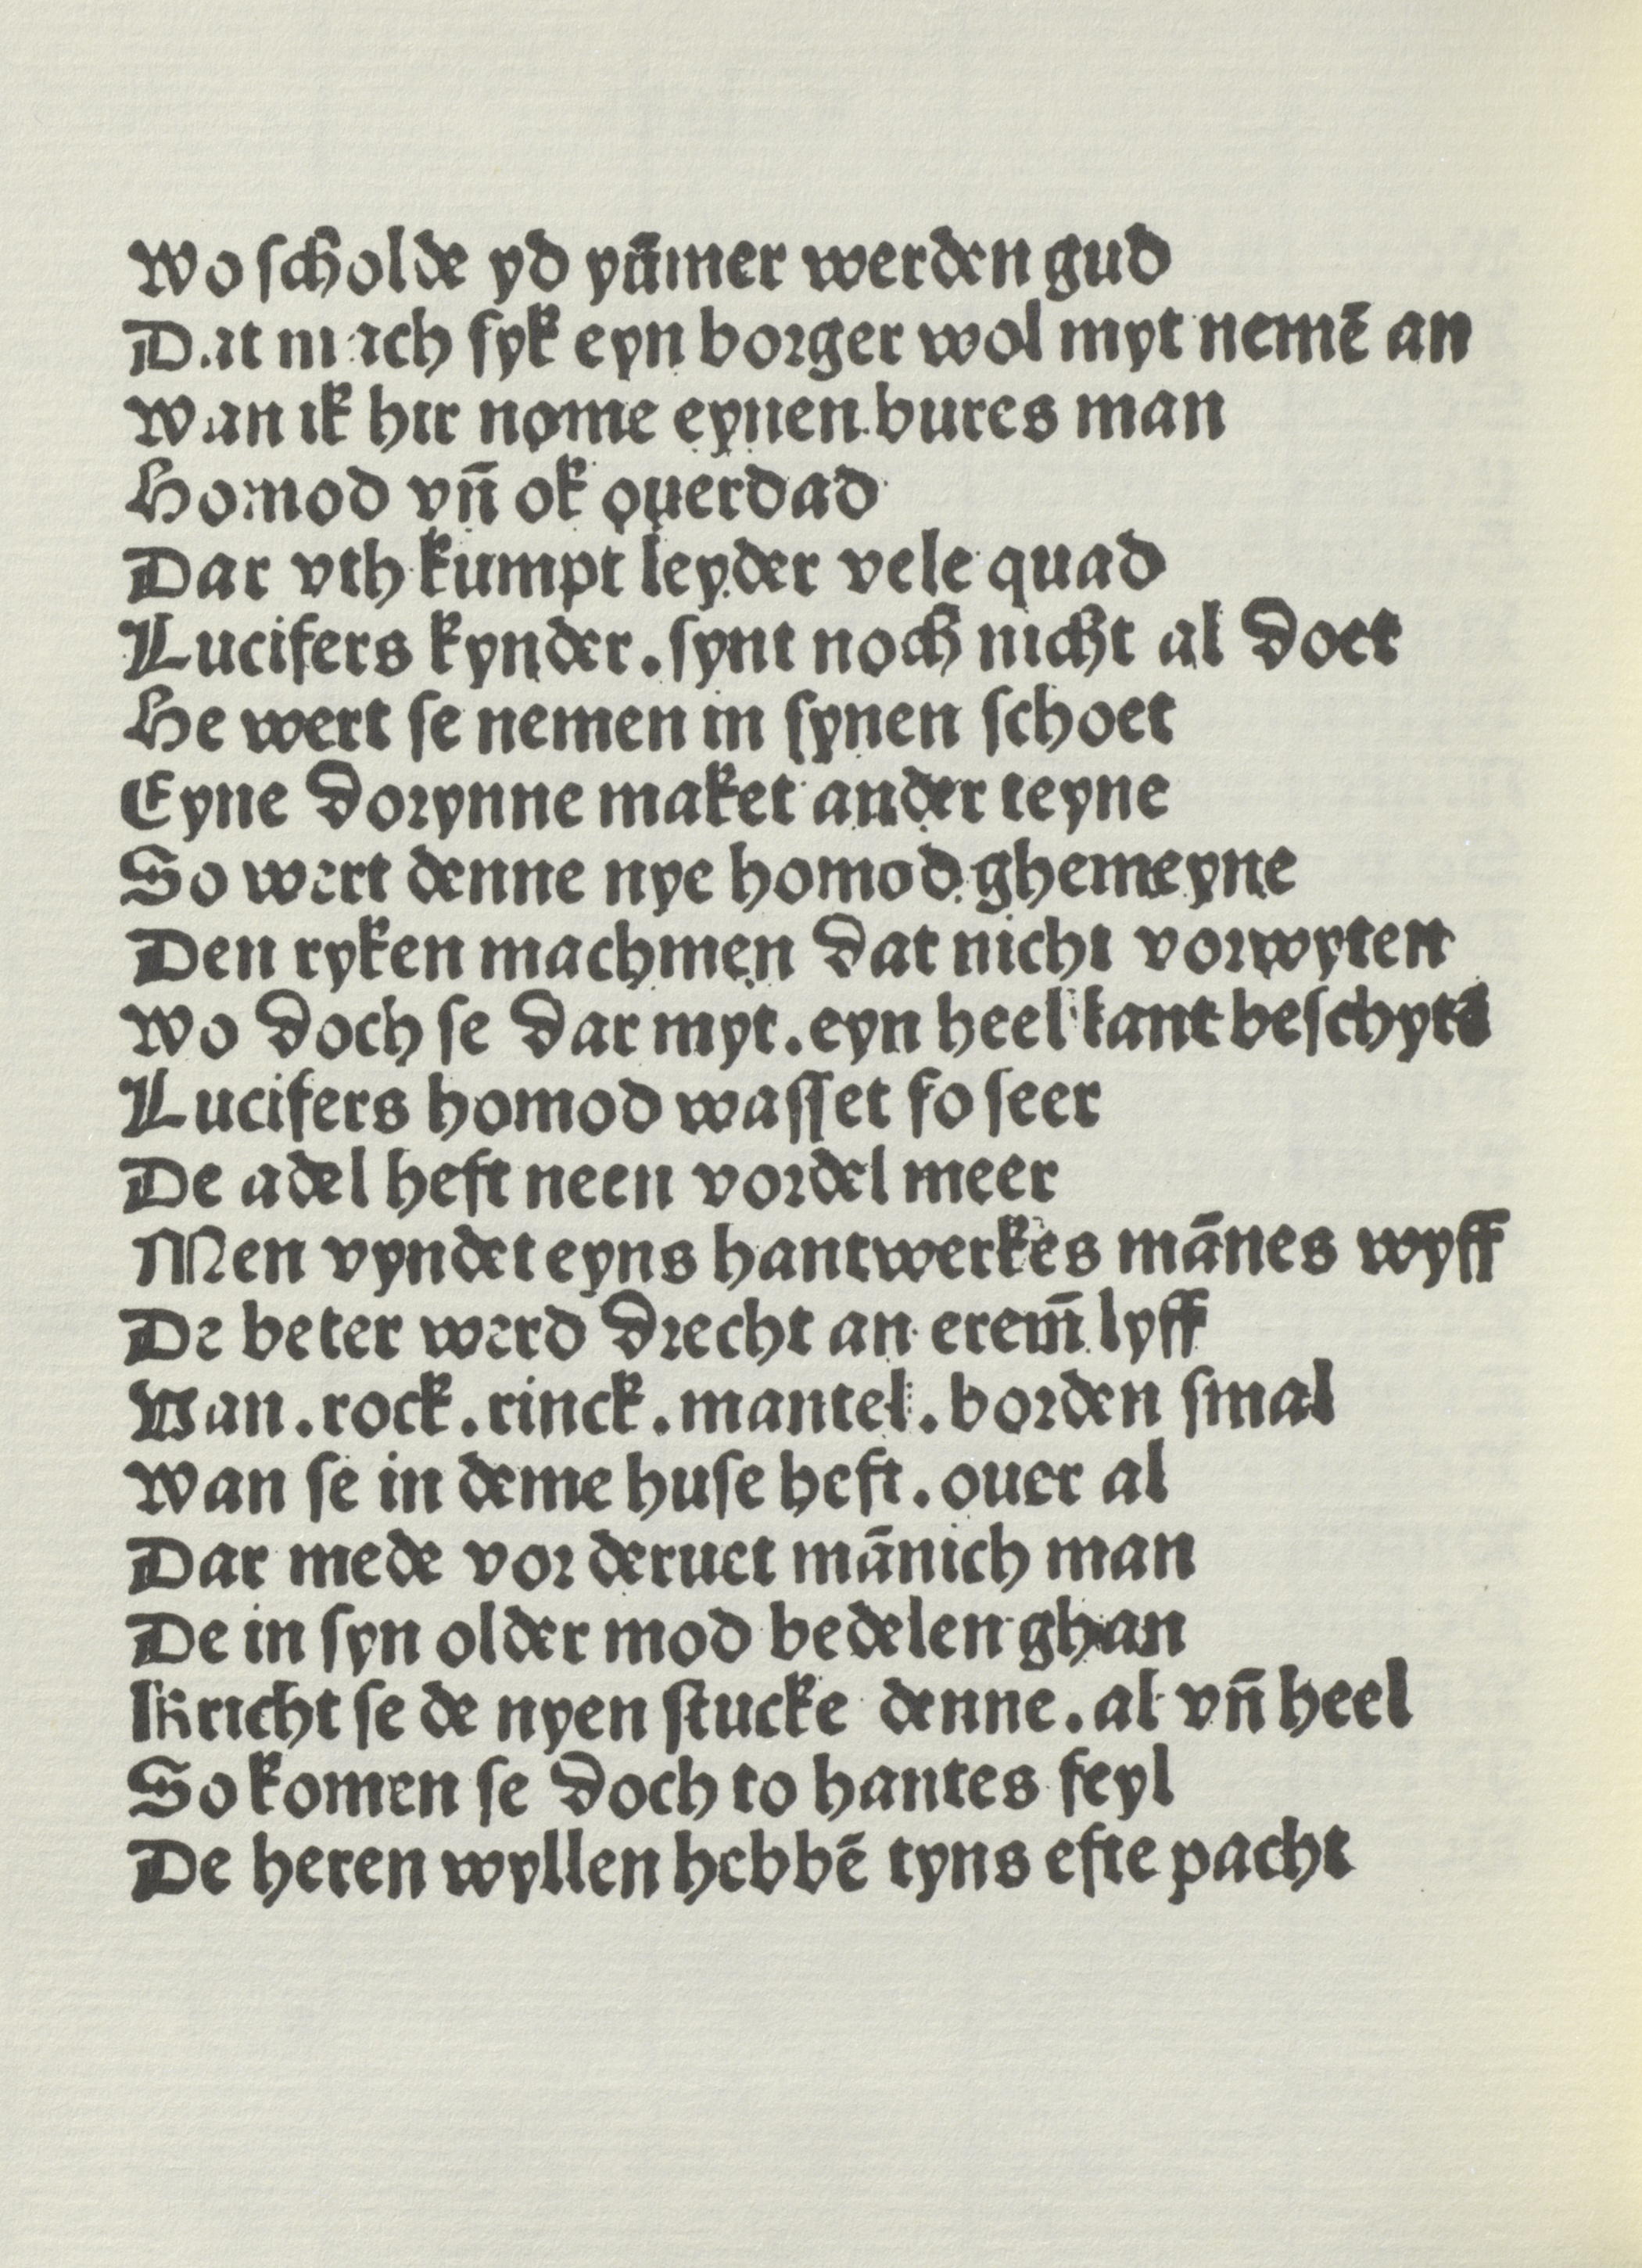 Wo scholde yd ym̄mer werden gud
Dat mach syk eyn borger wol myt nemē an
Wan ik hir nome eynen bures man
Homod vn̄ ok ouerdad
Dar vth kumpt leyder vele quad
Lucifers kynder. synt noch nicht al doet
He wert se nemen in synen schoet
Eyne dorynne maket ander teyne
So wert denne nye homod ghemeyne
Den ryken machmen dat nicht vorwyten
Wo doch se dar myt. eyn heel lant beschytē
Lucifers homod wasset so seer
De adel heft neen vordel meer
Men vyndet eyns hantwerkes mānes wyff
De beter werd drecht an erem̄ lyff
Van. rock. rinck. mantel. borden smal
Wan se in deme huse heft. ouer al
Dar mede vorderuet mānich man
De in syn older mod bedelen ghan
Kricht se de nyen stucke denne. al vn̄ heel
So komen se doch to hantes feyl
De heren wyllen hebbē tyns efte pacht